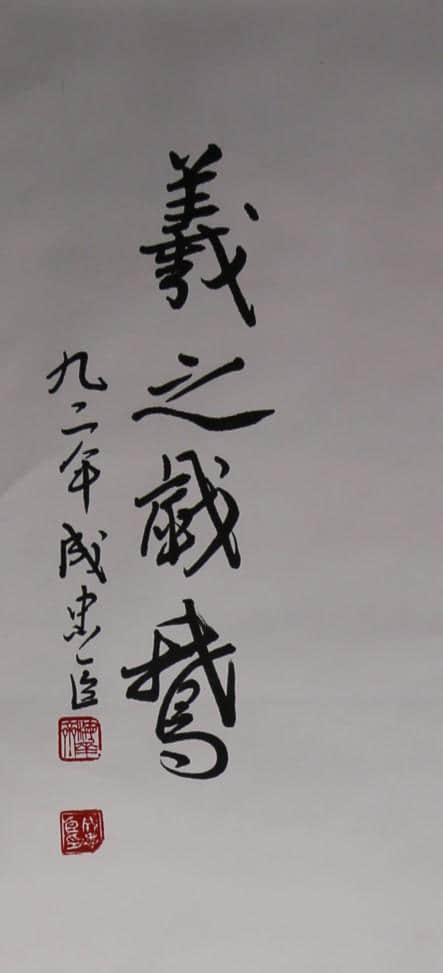 羲之戲鵞
九二年成忠臣